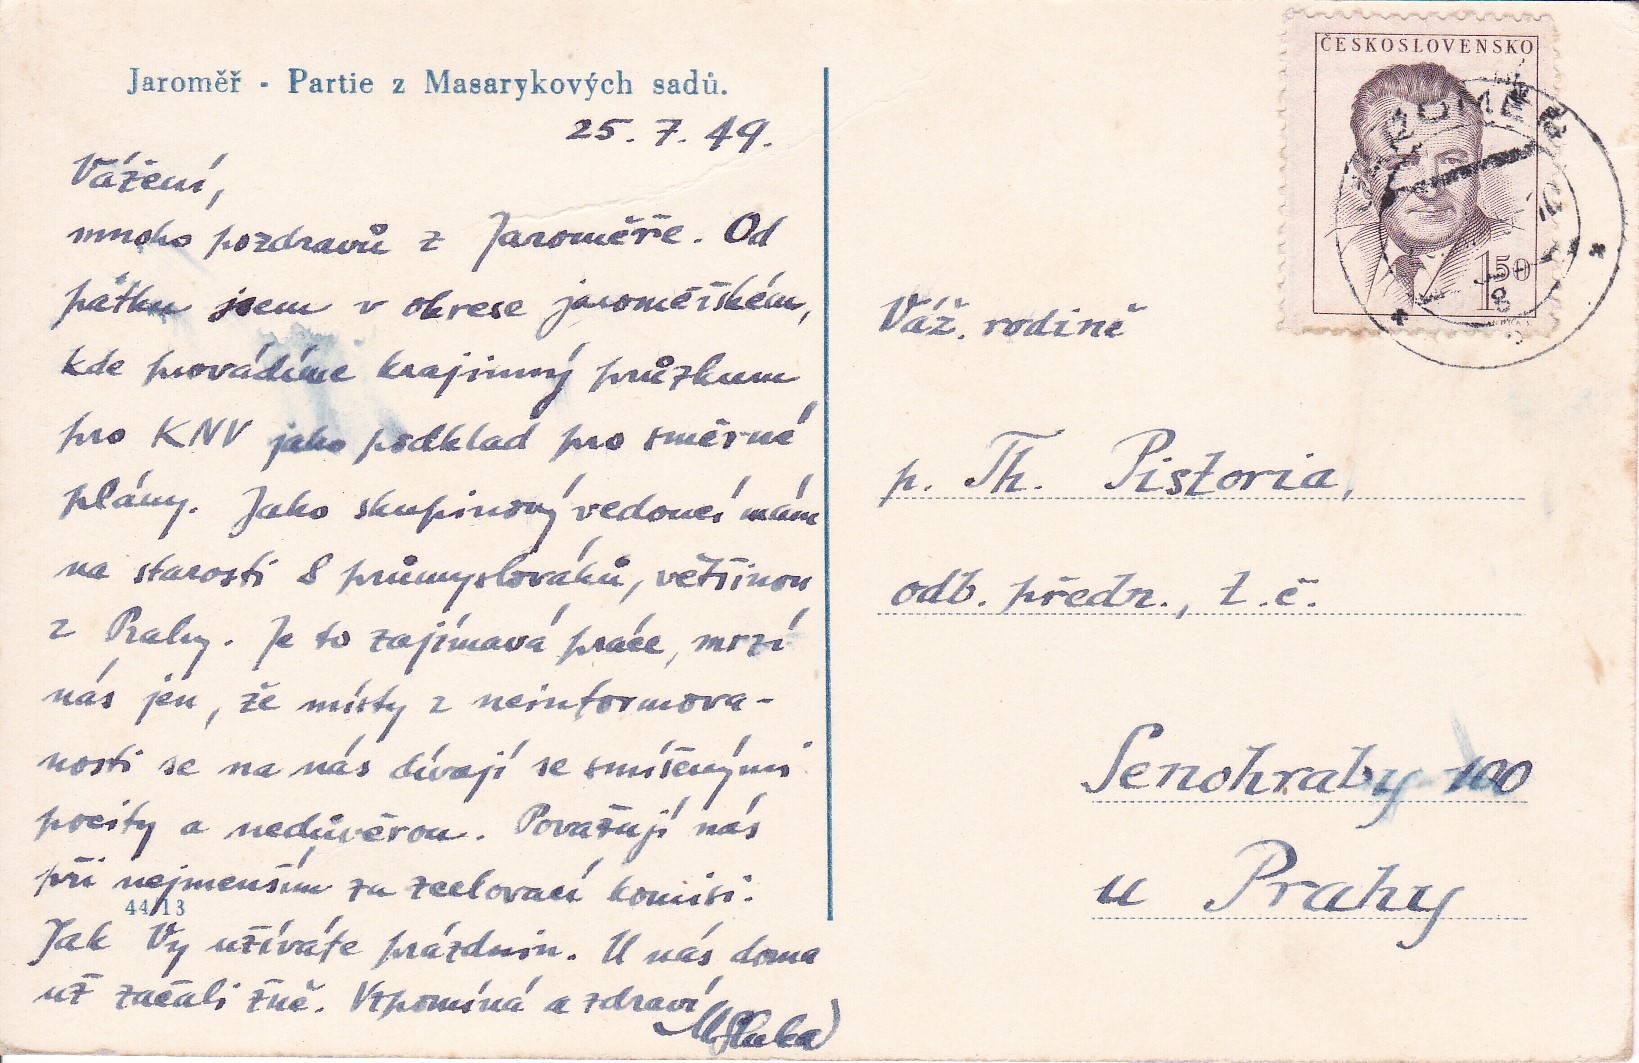 Jaroměř - Partie z Masarykových sadů.
25. 7. 49.
Vážení,
mnoho pozdravů z Jaroměře. Od
pátku jsem v okrese jaroměřském,
kde provádíme krajinný průzkum
pro KNV jako podklad pro směrné
plány. Jako skupinový vedoucí mám
na starosti 8 průmyslováků, většinou
z Prahy. Je to zajímavá práce, mrzí
nás jen, že místy z neinformova-
nosti se na nás dívají se smíšenými
pocity a nedůvěrou. Považují nás
při nejmenším za zcelovací komisi.
44/13
Jak Vy užíváte prázdnin. U nás doma
už začali žně. Vzpomíná a zdraví
ČESKOSLOVENSKO
1.50
JAROMĚŘ
Váž. rodině
p. Th. Pistoria,
odb. předn., t. č.
Senohraby 100
u Prahy